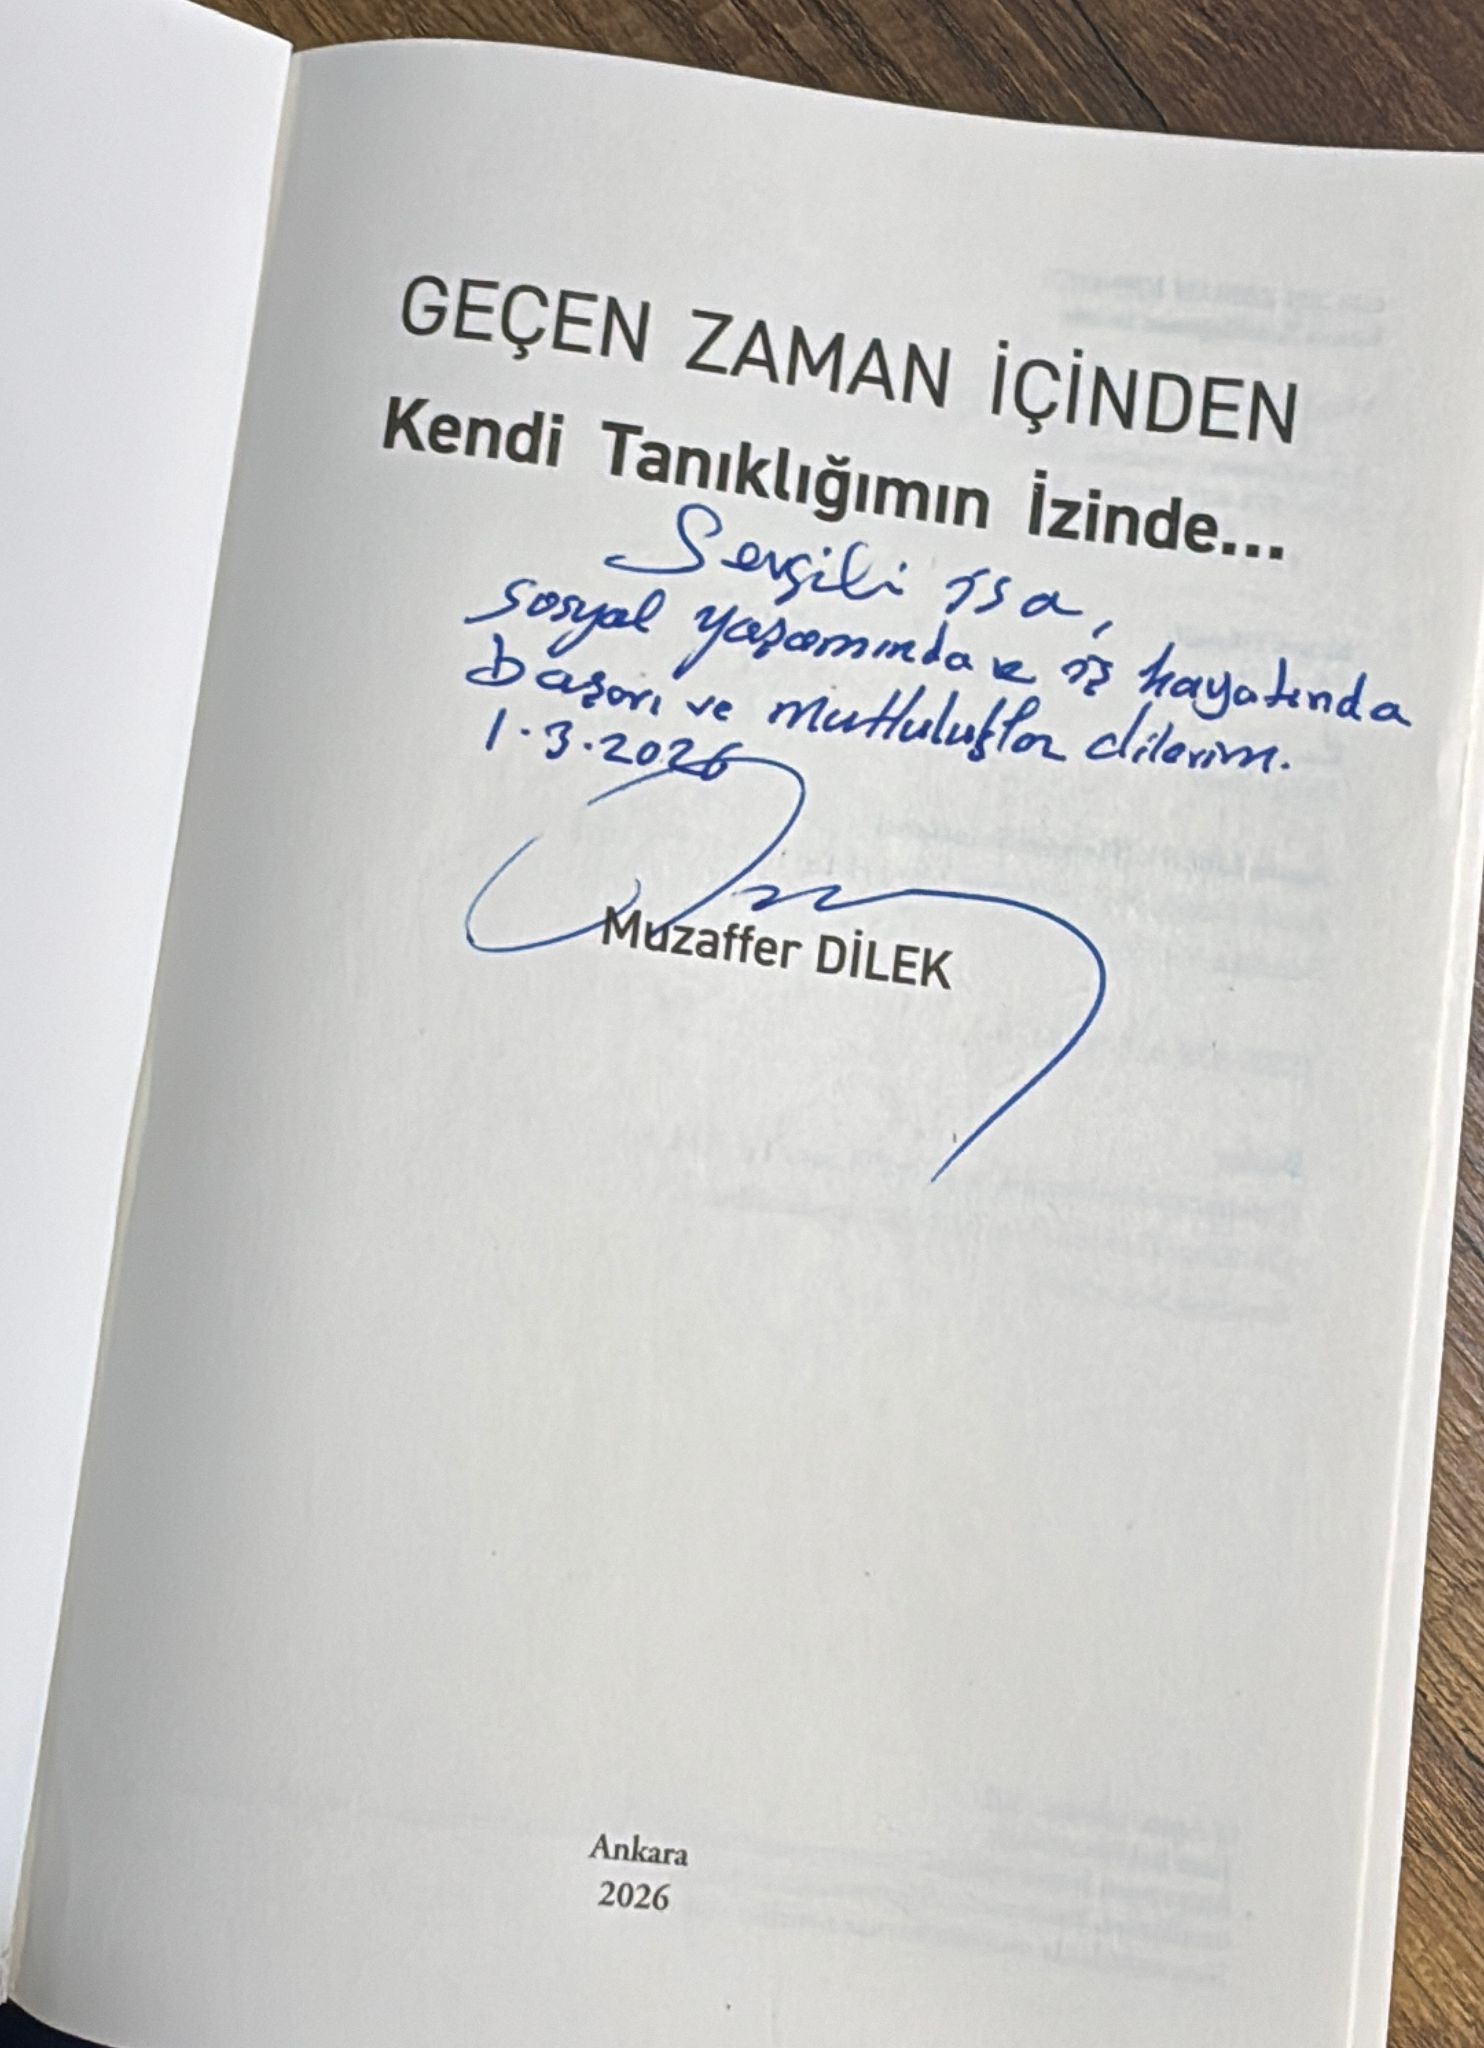 GEÇEN ZAMAN İÇİNDEN
Kendi Tanıklığımın İzinde...
Sevgili İsa,
sosyal yaşamında ve iş hayatında
başarı ve mutluluklar dilerim.
1.3.2026
Muzaffer DİLEK
Ankara
2026